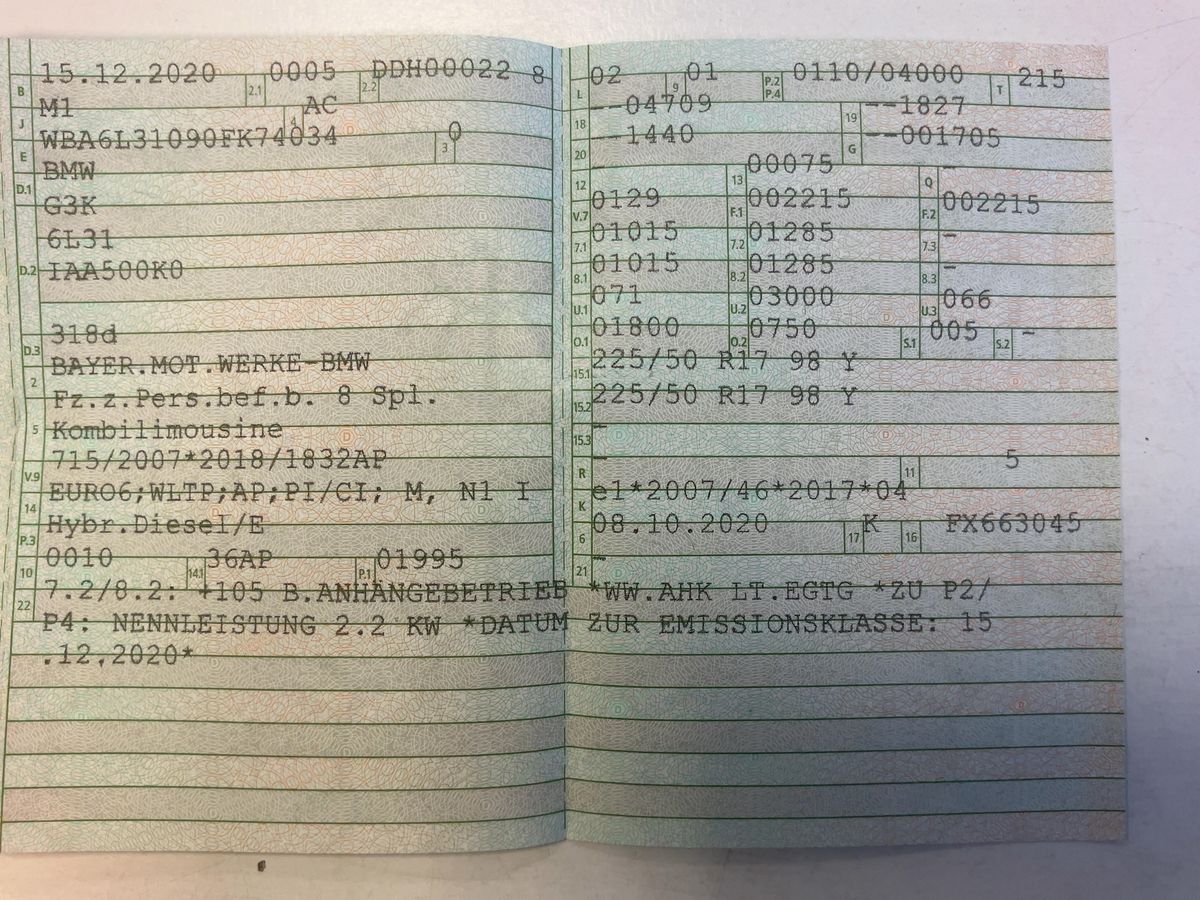 B 15.12.2020 2.1 0005 2.2 DDH00022 8
J M1 4 AC
E WBA6L31090FK74034 3 0
D.1 BMW
G3K
D.2 6L31
IAA500K0
D.3 318d
2 BAYER.MOT.WERKE-BMW
Fz.z.Pers.bef.b. 8 Spl.
5 Kombilimousine
V.9 715/2007*2018/1832AP
14 EURO6;WLTP;AP;PI/CI; M, N1 I
P.3 Hybr.Diesel/E
10 0010 14.1 36AP P.1 01995
L 02 9 01 P.2 P.4 0110/04000 T 215
18 --04709 19 --1827
20 --1440 G --001705
12 13 00075 Q -
V.7 0129 F.1 002215 F.2 002215
7.1 01015 7.2 01285 7.3 -
8.1 01015 8.2 01285 8.3 -
U.1 071 U.2 03000 U.3 066
O.1 01800 O.2 0750 S.1 005 S.2 -
15.1 225/50 R17 98 Y
15.2 225/50 R17 98 Y
15.3 -
R - 11 5
K e1*2007/46*2017*04
6 08.10.2020 17 K 16 FX663045
21 -
22 7.2/8.2: +105 B.ANHÄNGEBETRIEB *WW.AHK LT.EGTG *ZU P2/
P4: NENNLEISTUNG 2.2 KW *DATUM ZUR EMISSIONSKLASSE: 15
.12.2020*